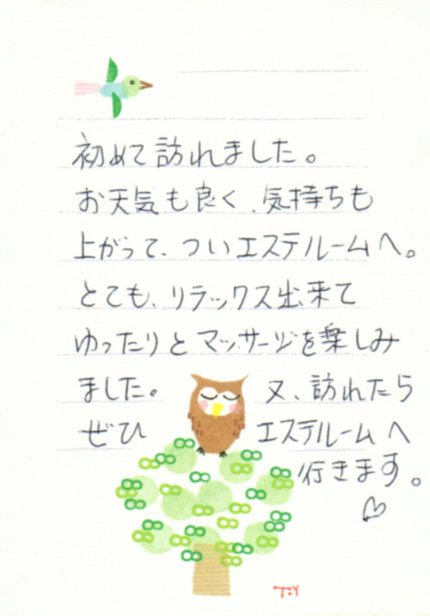 初めて訪れました。
お天気も良く、気持ちも
上がって、ついエステルームへ。
とても、リラックス出来て
ゆったりとマッサージを楽しみ
ました。 又、訪れたら
ぜひ エステルームへ
行きます。
♡
T:Y